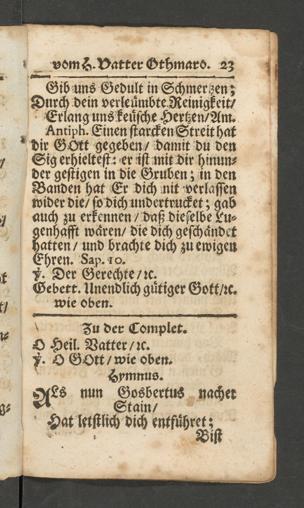 vom H. Vatter Othmaro. 23
Gib uns Gedult in Schmertzen;
Durch dein verleümbte Reinigkeit/
Erlang uns keüsche Hertzen/Am.
Antiph. Einen starcken Streit hat
dir GOtt gegeben/ damit du den
Sig erhieltest: er ist mit dir hinun-
der gestigen in die Gruben; in den
Banden hat Er dich nit verlassen
wider die/ so dich undertrucket; gab
auch zu erkennen/ daß dieselbe Lu-
genhafft wären/ die dich geschändet
hatten/ und brachte dich zu ewigen
Ehren. Sap. 10.
℣. Der Gerechte/ ꝛc.
Gebett. Unendlich gütiger Gott/ꝛc.
wie oben.
Zu der Complet.
O Heil. Vatter/ ꝛc.
℣. O GOtt/ wie oben.
Hymnus.
ALs nun Gosbertus nacher
Stain/
Hat letstlich dich entführet;
Bist